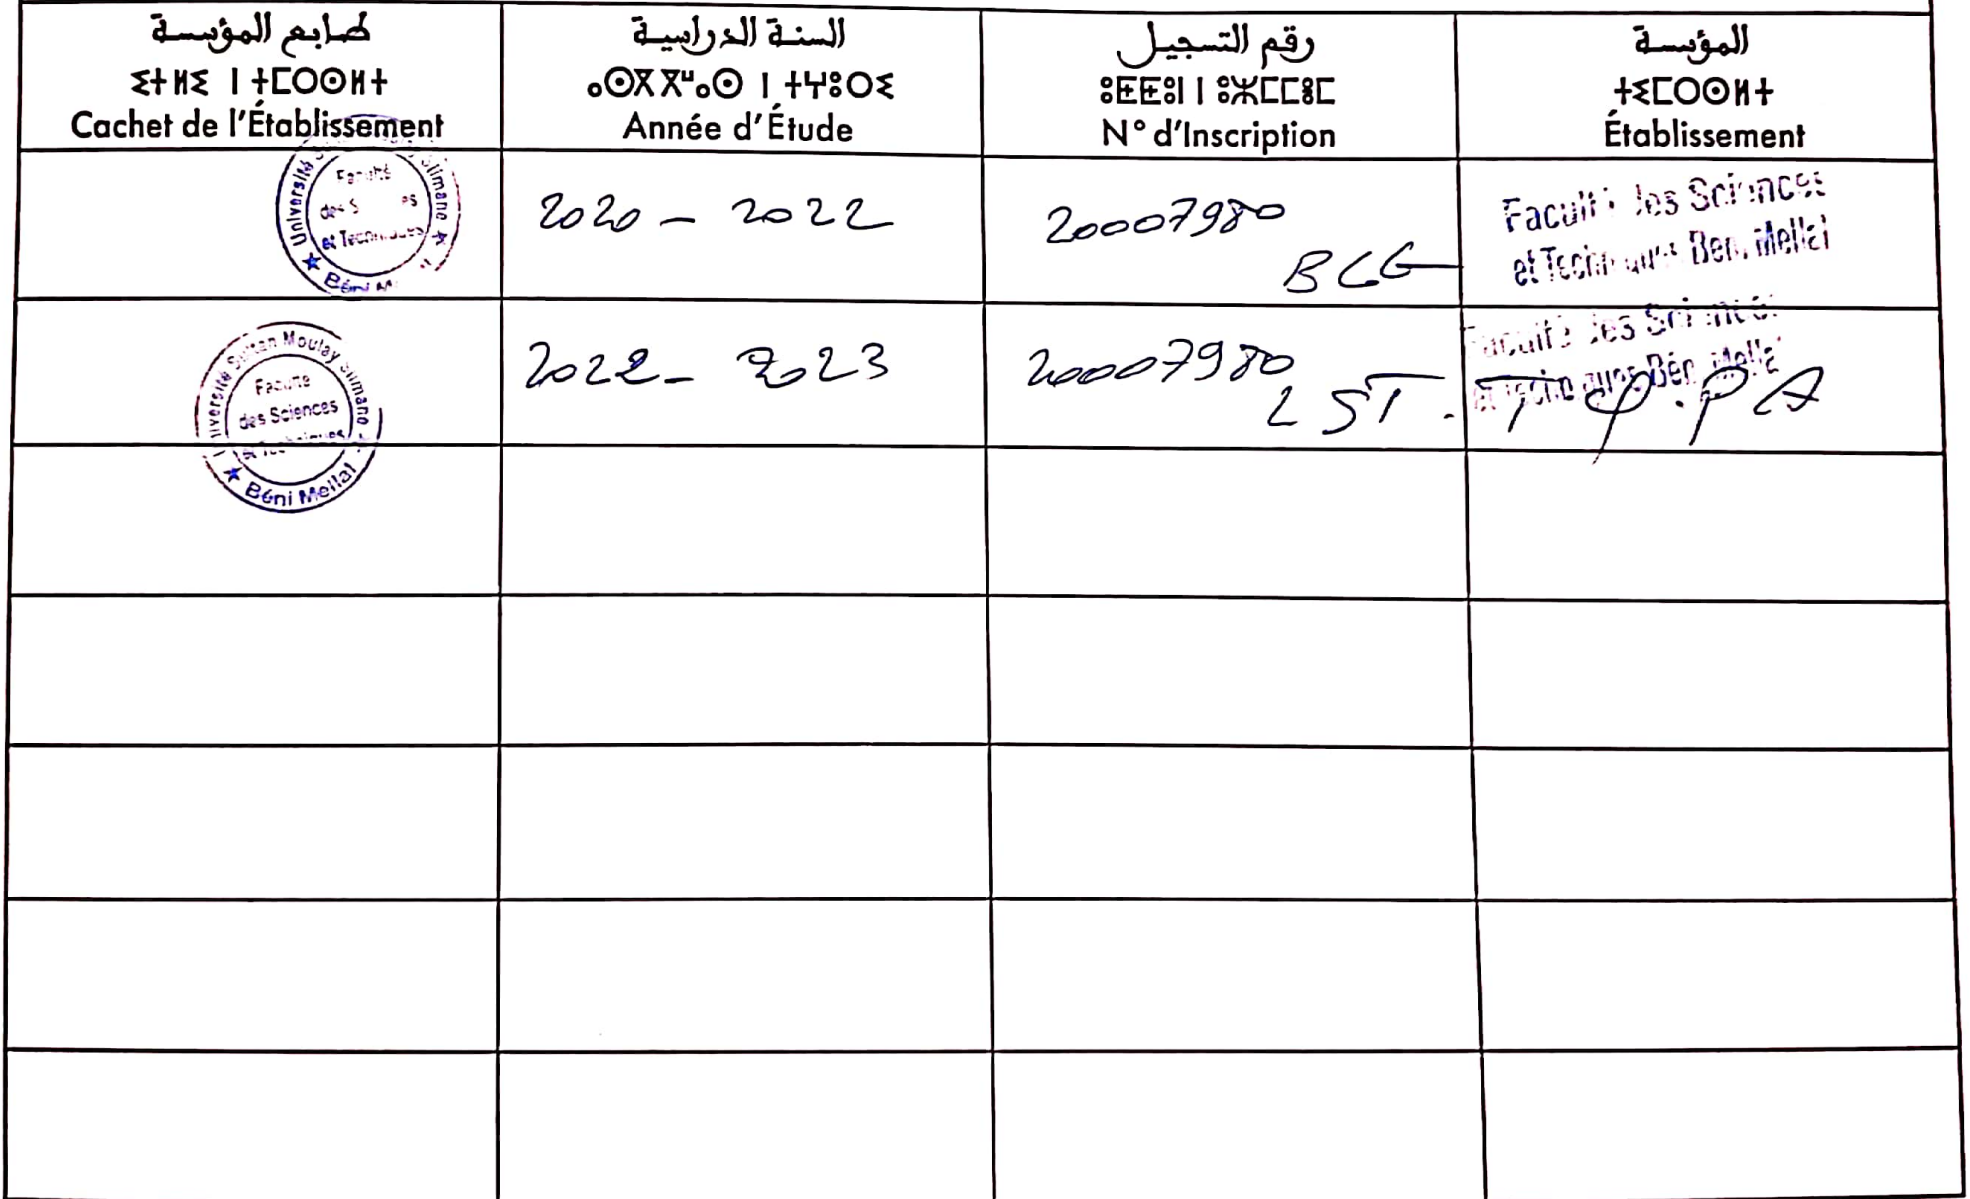 طابع المؤسسة
ⵉⵜⵍⵉ ⵏ ⵜⵎⵔⵙⵍⵜ
Cachet de l'Établissement
السنة الدراسية
ⴰⵙⴳⴳⵯⴰⵙ ⵏ ⵜⵖⵓⵔⵉ
Année d'Étude
رقم التسجيل
ⵓⵟⵟⵓⵏ ⵏ ⵓⵣⵎⵎⵓⵎ
N° d'Inscription
المؤسسة
ⵜⵉⵎⵔⵙⵍⵜ
Établissement
Université Slimane
Faculté
des
et Techniques
Béni
2020 - 2022
20007980
BCG
Faculté des Sciences
et Techniques Béni Mellal
Université Sultan Moulay Slimane
Faculté
des Sciences
et Techniques
Béni Mellal
2022 - 2023
20007980
LST.T φ.PA
Faculté des Sciences
et Techniques Béni Mellal